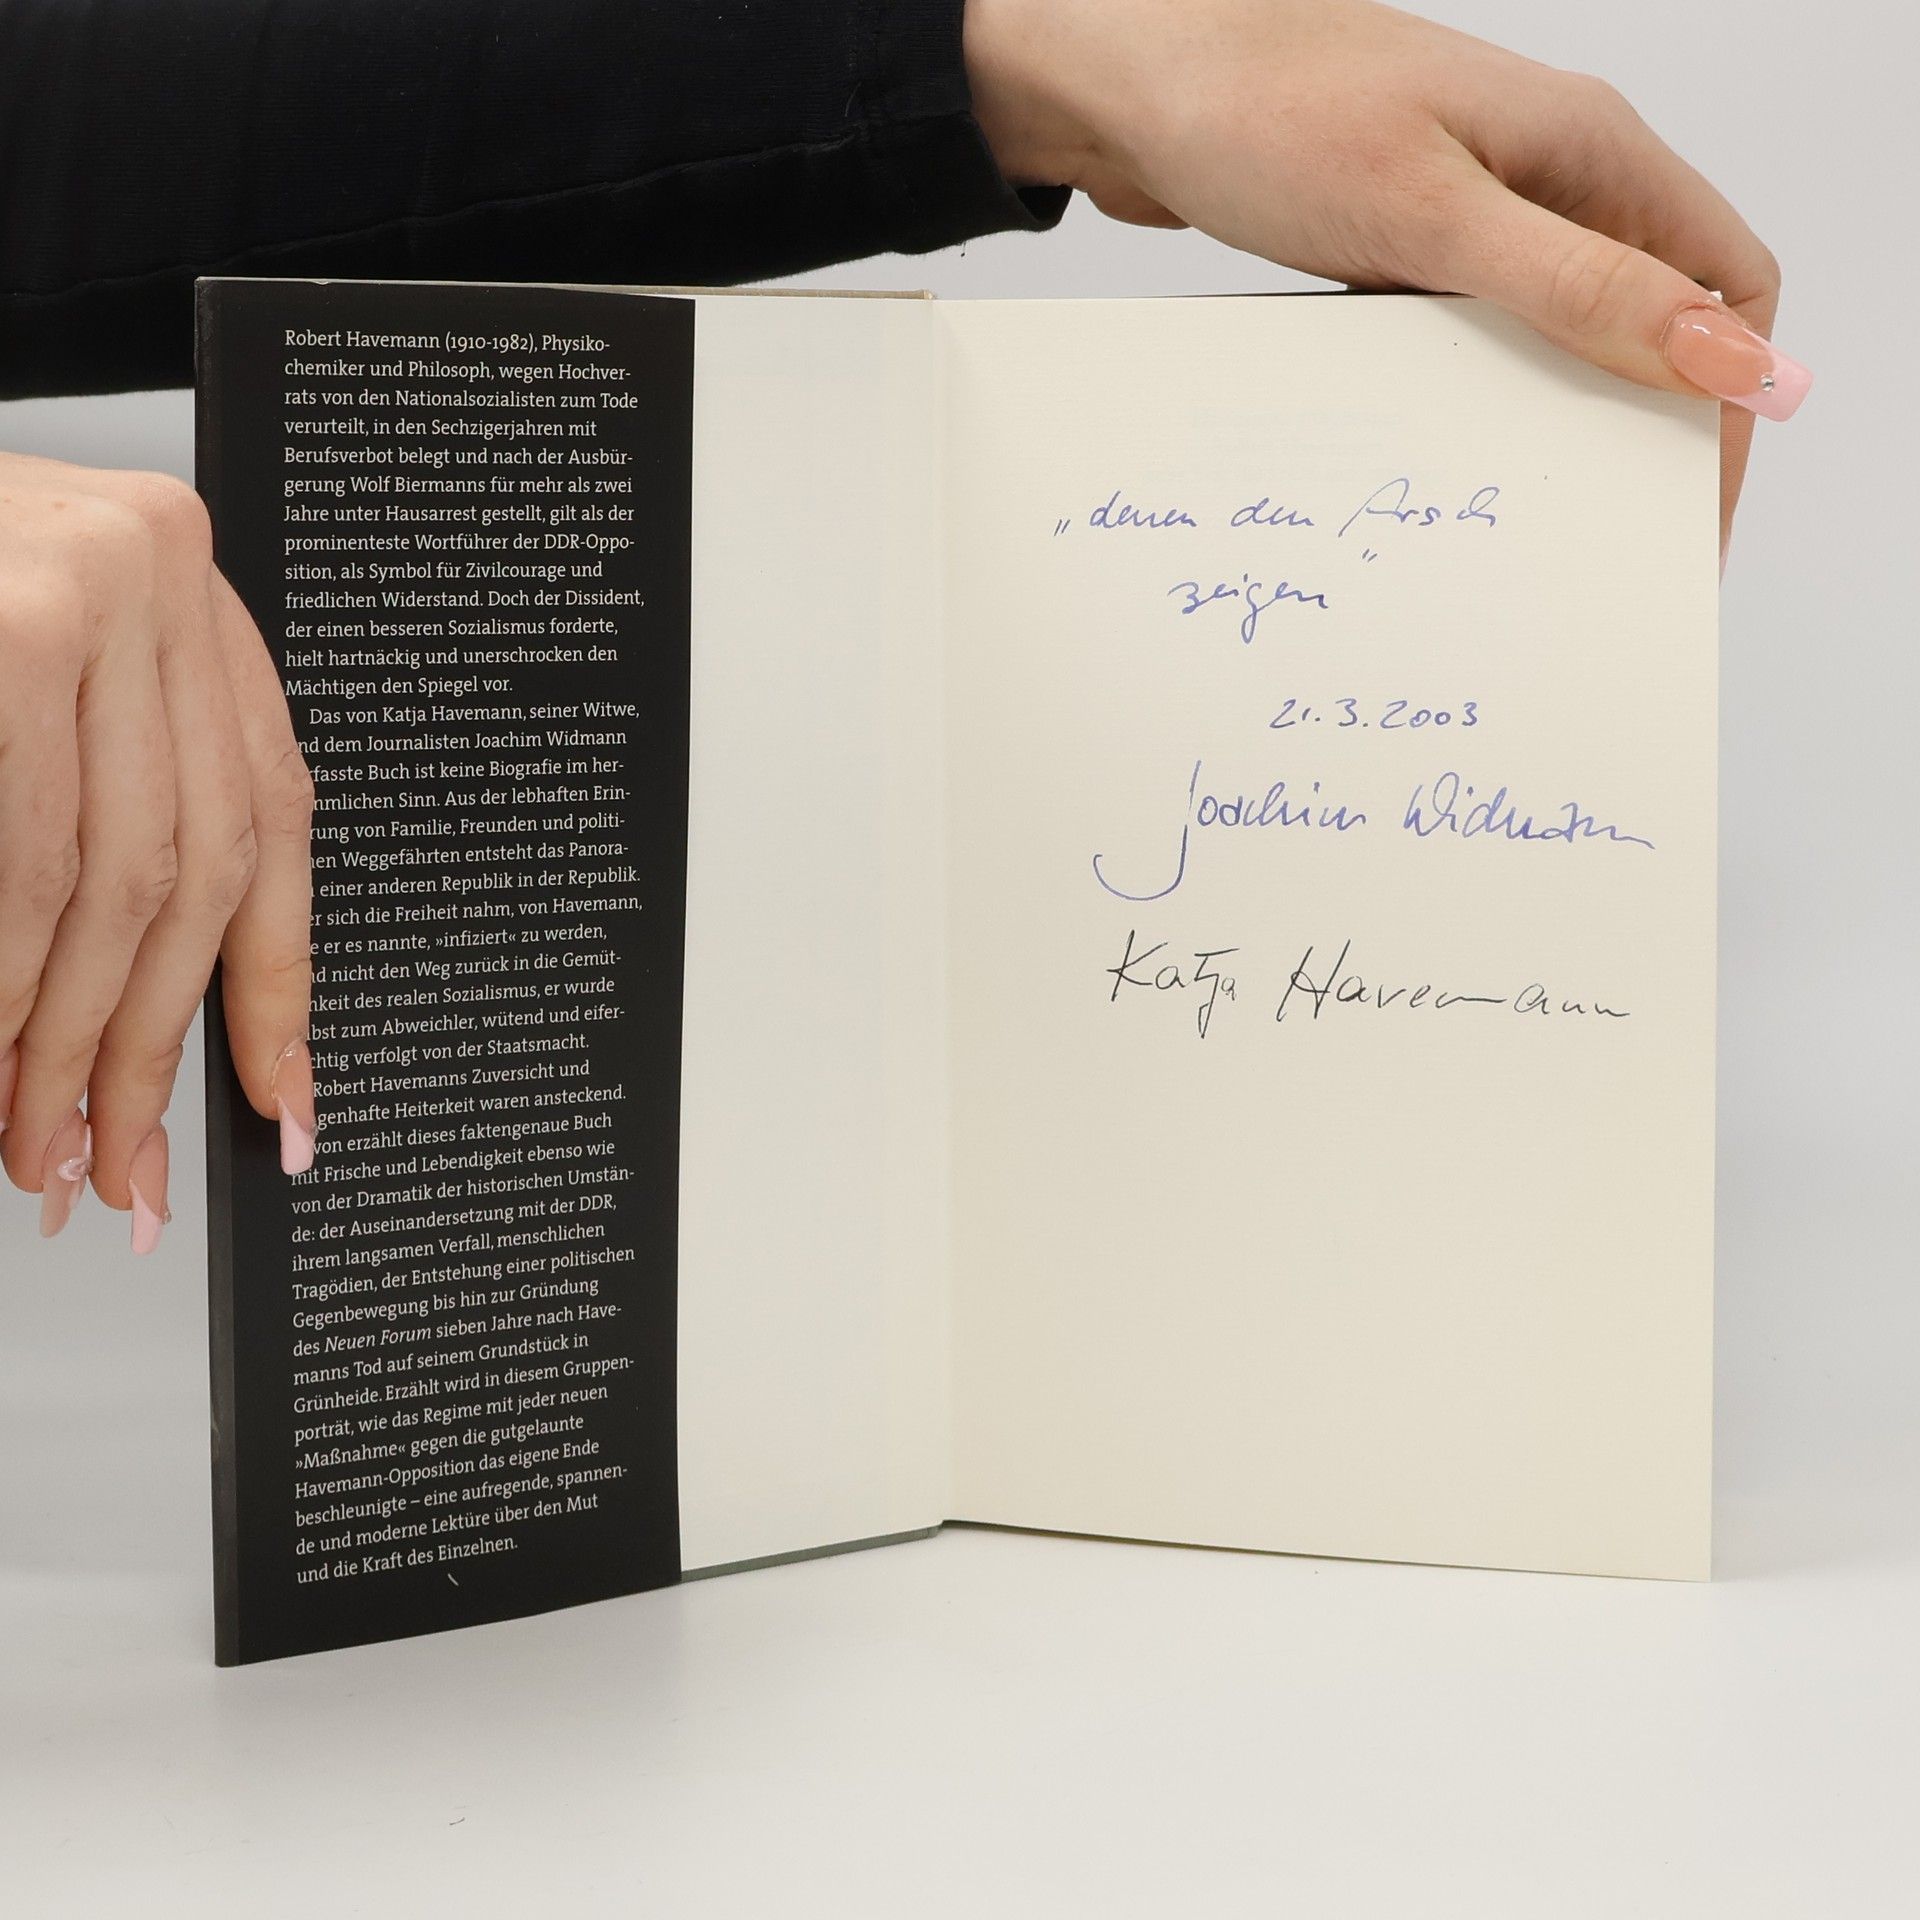 Robert Havemann (1910-1982), Physiko-
chemiker und Philosoph, wegen Hochver-
rats von den Nationalsozialisten zum Tode
verurteilt, in den Sechzigerjahren mit
Berufsverbot belegt und nach der Ausbür-
gerung Wolf Biermanns für mehr als zwei
Jahre unter Hausarrest gestellt, gilt als der
prominenteste Wortführer der DDR-Oppo-
sition, als Symbol für Zivilcourage und
friedlichen Widerstand. Doch der Dissident,
der einen besseren Sozialismus forderte,
hielt hartnäckig und unerschrocken den
Mächtigen den Spiegel vor.
Das von Katja Havemann, seiner Witwe,
nd dem Journalisten Joachim Widmann
rfasste Buch ist keine Biografie im her-
mmlichen Sinn. Aus der lebhaften Erin-
rung von Familie, Freunden und politi-
hen Weggefährten entsteht das Panora-
einer anderen Republik in der Republik.
er sich die Freiheit nahm, von Havemann,
e er es nannte, »infiziert« zu werden,
nd nicht den Weg zurück in die Gemüt-
hkeit des realen Sozialismus, er wurde
lbst zum Abweichler, wütend und eifer-
chtig verfolgt von der Staatsmacht.
Robert Havemanns Zuversicht und
genhafte Heiterkeit waren ansteckend.
von erzählt dieses faktengenaue Buch
mit Frische und Lebendigkeit ebenso wie
von der Dramatik der historischen Umstän-
de: der Auseinandersetzung mit der DDR,
ihrem langsamen Verfall, menschlichen
Tragödien, der Entstehung einer politischen
Gegenbewegung bis hin zur Gründung
des Neuen Forum sieben Jahre nach Have-
manns Tod auf seinem Grundstück in
Grünheide. Erzählt wird in diesem Gruppen-
porträt, wie das Regime mit jeder neuen
»Maßnahme« gegen die gutgelaunte
Havemann-Opposition das eigene Ende
beschleunigte – eine aufregende, spannen-
de und moderne Lektüre über den Mut
und die Kraft des Einzelnen.
„denen den Arsch
zeigen"
21.3.2003
Joachim Widmann
Katja Havemann